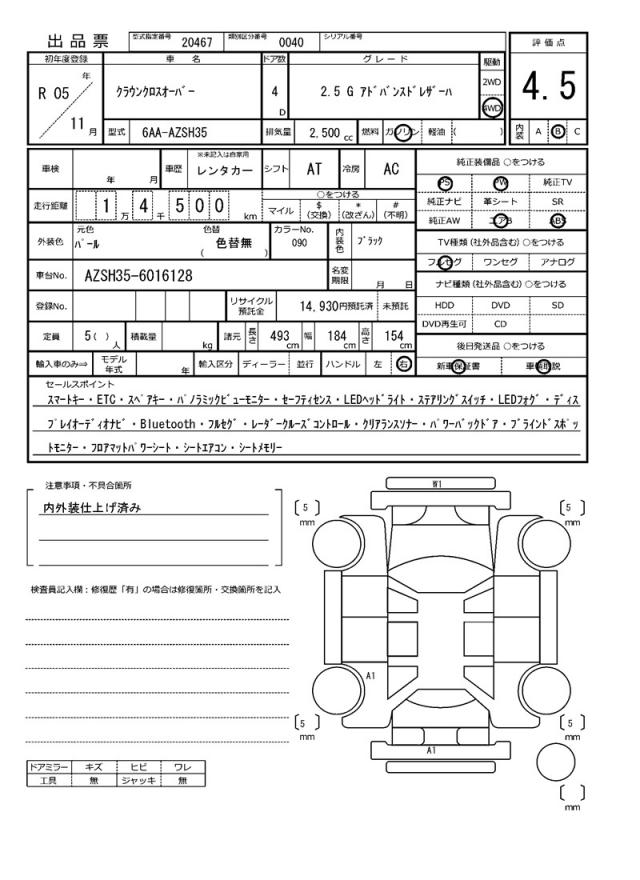 出 品 票 型式指定番号 20467 類別区分番号 0040 シリアル番号
評 価 点
4.5
内装 A B C
初年度登録 車 名 ドア数 グ レ ー ド 駆動
R 05 年 11 月
クラウンクロスオーバー 4 D 2.5 G アドバンスドレザーハ 2WD 4WD
型式 6AA-AZSH35 排気量 2,500 cc 燃料 ガソリン 軽油 ( )
車検 年 月 車歴 ※未記入は自家用 レンタカー シフト AT 冷房 AC
走行距離 1 万 4 千 5 0 0 km
○をつける
マイル $ (交換) * (改ざん) # (不明)
外装色 元色 パール 色替 ( 色替無 ) カラーNo. 090 内装色 ブラック
車台No. AZSH35-6016128 名変期限 月 日
登録No. リサイクル預託金 14,930円預託済 未預託
定員 5( ) 人 積載量 kg 諸元 長さ 493 cm 幅 184 cm 高さ 154 cm
輸入車のみ⇒ モデル年式 年 輸入区分 ディーラー 並行 ハンドル 左 右
純正装備品 ○をつける
PS PW 純正TV
純正ナビ 革シート SR
純正AW エアB ABS
TV種類 (社外品含む) ○をつける
フルセグ ワンセグ アナログ
ナビ種類 (社外品含む) ○をつける
HDD DVD SD
DVD再生可 CD
後日発送品 ○をつける
新車保証書 車輌取説
セールスポイント
スマートキー・ETC・スペアキー・パノラミックビューモニター・セーフティセンス・LEDヘッドライト・ステアリングスイッチ・LEDフォグ・ディス
プレイオーディオナビ・Bluetooth・フルセグ・レーダークルーズコントロール・クリアランスソナー・パワーバックドア・ブラインドスポッ
トモニター・フロアマットパワーシート・シートエアコン・シートメモリー
注意事項・不具合箇所
内外装仕上げ済み
検査員記入欄：修復歴「有」の場合は修復箇所・交換箇所を記入
ドアミラー キズ ヒビ ワレ
工具 無 ジャッキ 無
W1
[ 5 ] mm
[ 5 ] mm
A1
[ 5 ] mm
[ 5 ] mm
A1
[ ] mm